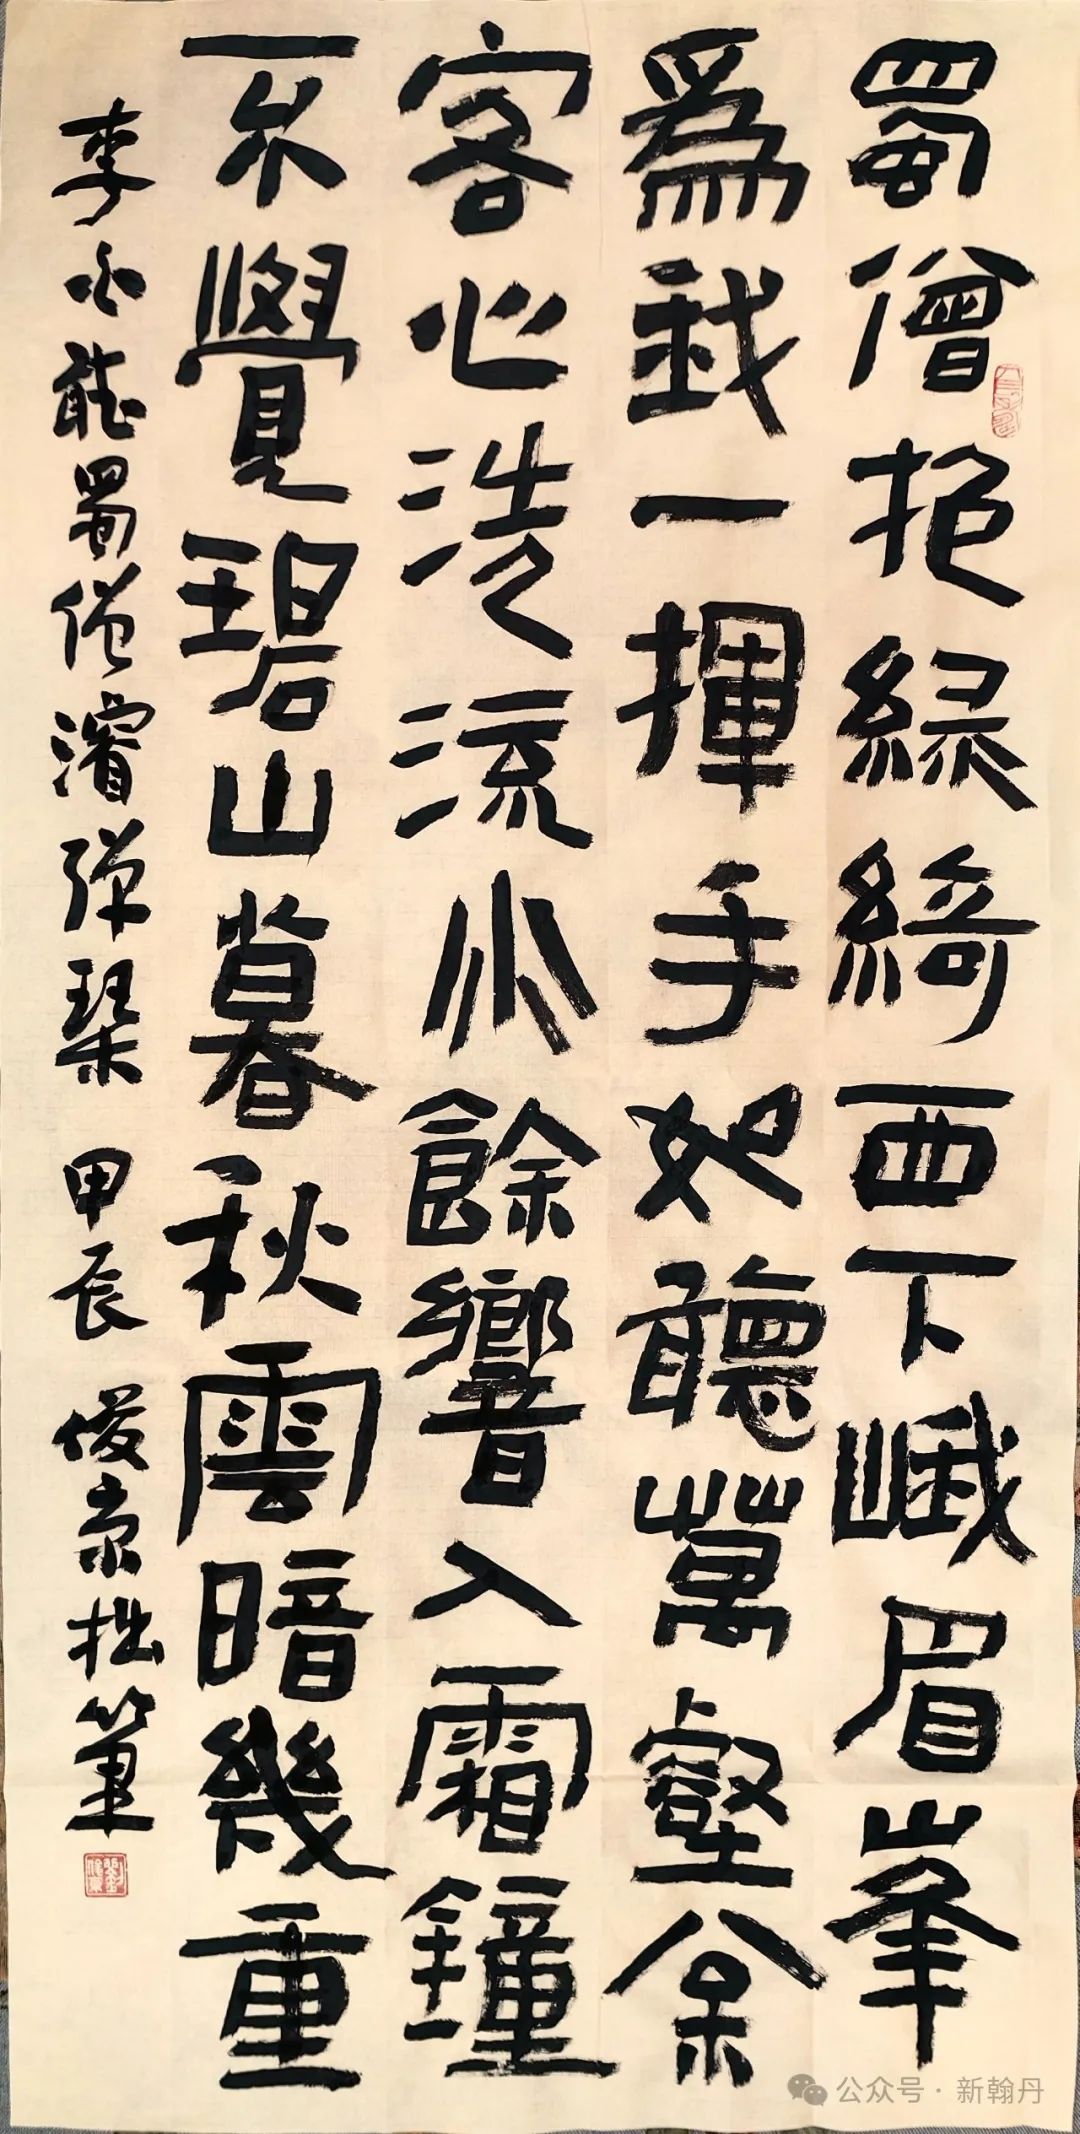 蜀僧抱綠綺西下峨眉峯
爲我一揮手如聽萬壑松
客心洗流水餘響入霜鐘
不覺碧山暮秋雲暗幾重
李白聽蜀僧濬彈琴 甲辰 俊京拙筆
公众号·新翰丹